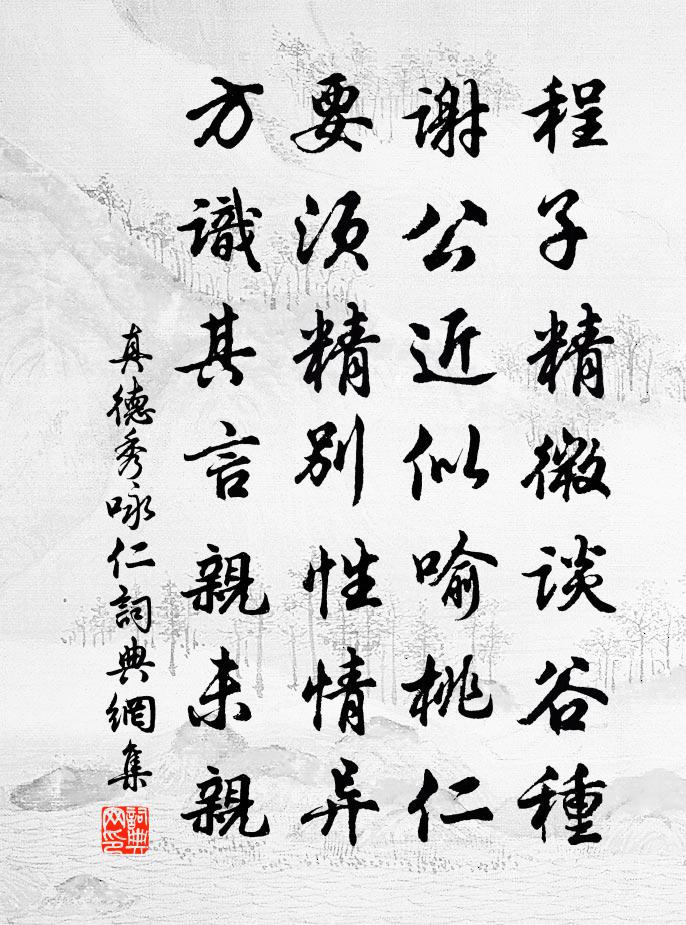 程子精微談谷種
謝公近似喻桃仁
要須精別性情异
方識其言親未親
真德秀咏仁詞典網集
詞典網印